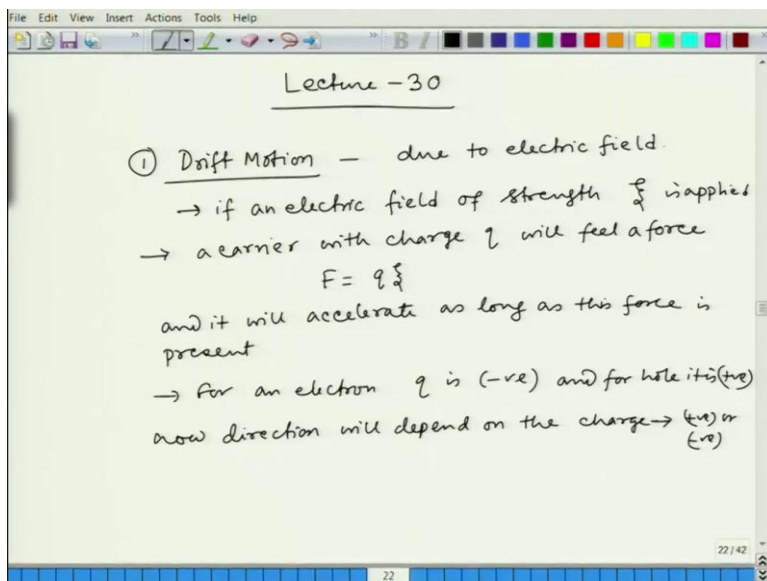 File Edit View Insert Actions Tools Help
B I
Lecture - 30
① Drift Motion — due to electric field.
→ if an electric field of strength ξ is applied
→ a carrier with charge q will feel a force
F = qξ
and it will accelerate as long as this force is
present
→ For an electron q is (-ve) and for hole it is (+ve)
now direction will depend on the charge → (+ve) or
(-ve)
22 / 42
22